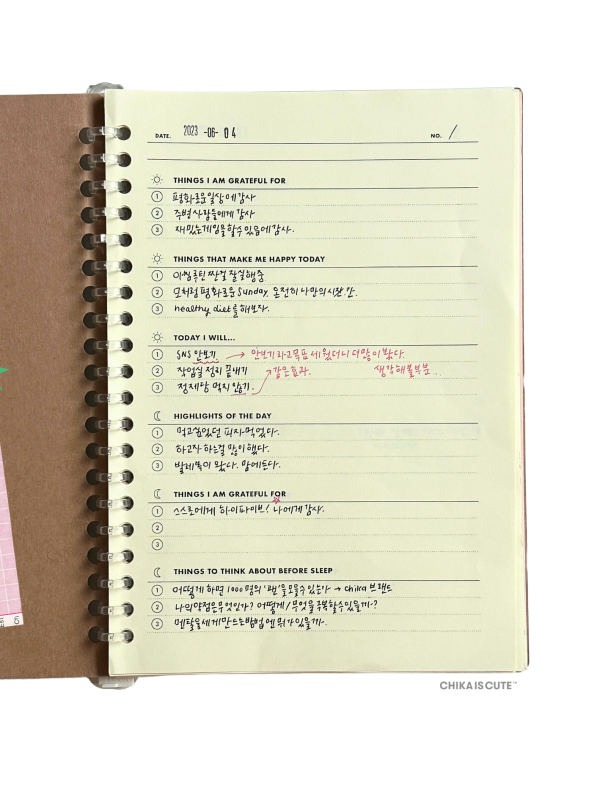 DATE. 2023 -06- 04 NO. /
THINGS I AM GRATEFUL FOR
1 평화로운일상에감사
2 주변사람들에게 감사
3 재밌는게임을할수있음에감사.
THINGS THAT MAKE ME HAPPY TODAY
1 아침루틴 짠걸 잘실행중
2 모처럼평화로운 Sunday. 온전히 나만의
3 healthy diet를해보자.
TODAY I WILL...
1 SNS 안보기 → 안보기라고목표세웠더니 더많이봤다.
2 작업실 정리 끝내기 같은효과. 생각해볼부분...
3 정제당 먹지 않기.
HIGHLIGHTS OF THE DAY
1 먹고싶었던 피자먹었다.
2 하고자하는걸 많이 했다.
3 발레복이 왔다. 맘에든다.
THINGS I AM GRATEFUL FOR
1 스스로에게 하이파이브! 나에게감사.
2
3
THINGS TO THINK ABOUT BEFORE SLEEP
1 어떻게 하면 1000명의 '팬'을모을수있는가 → chika 브랜드
2 나의약점은무엇인가? 어떻게/무엇을극복할수있을까?
3 멘탈을세게만드는방법엔 뭐가있을까.
CHIKA IS CUTE™
6